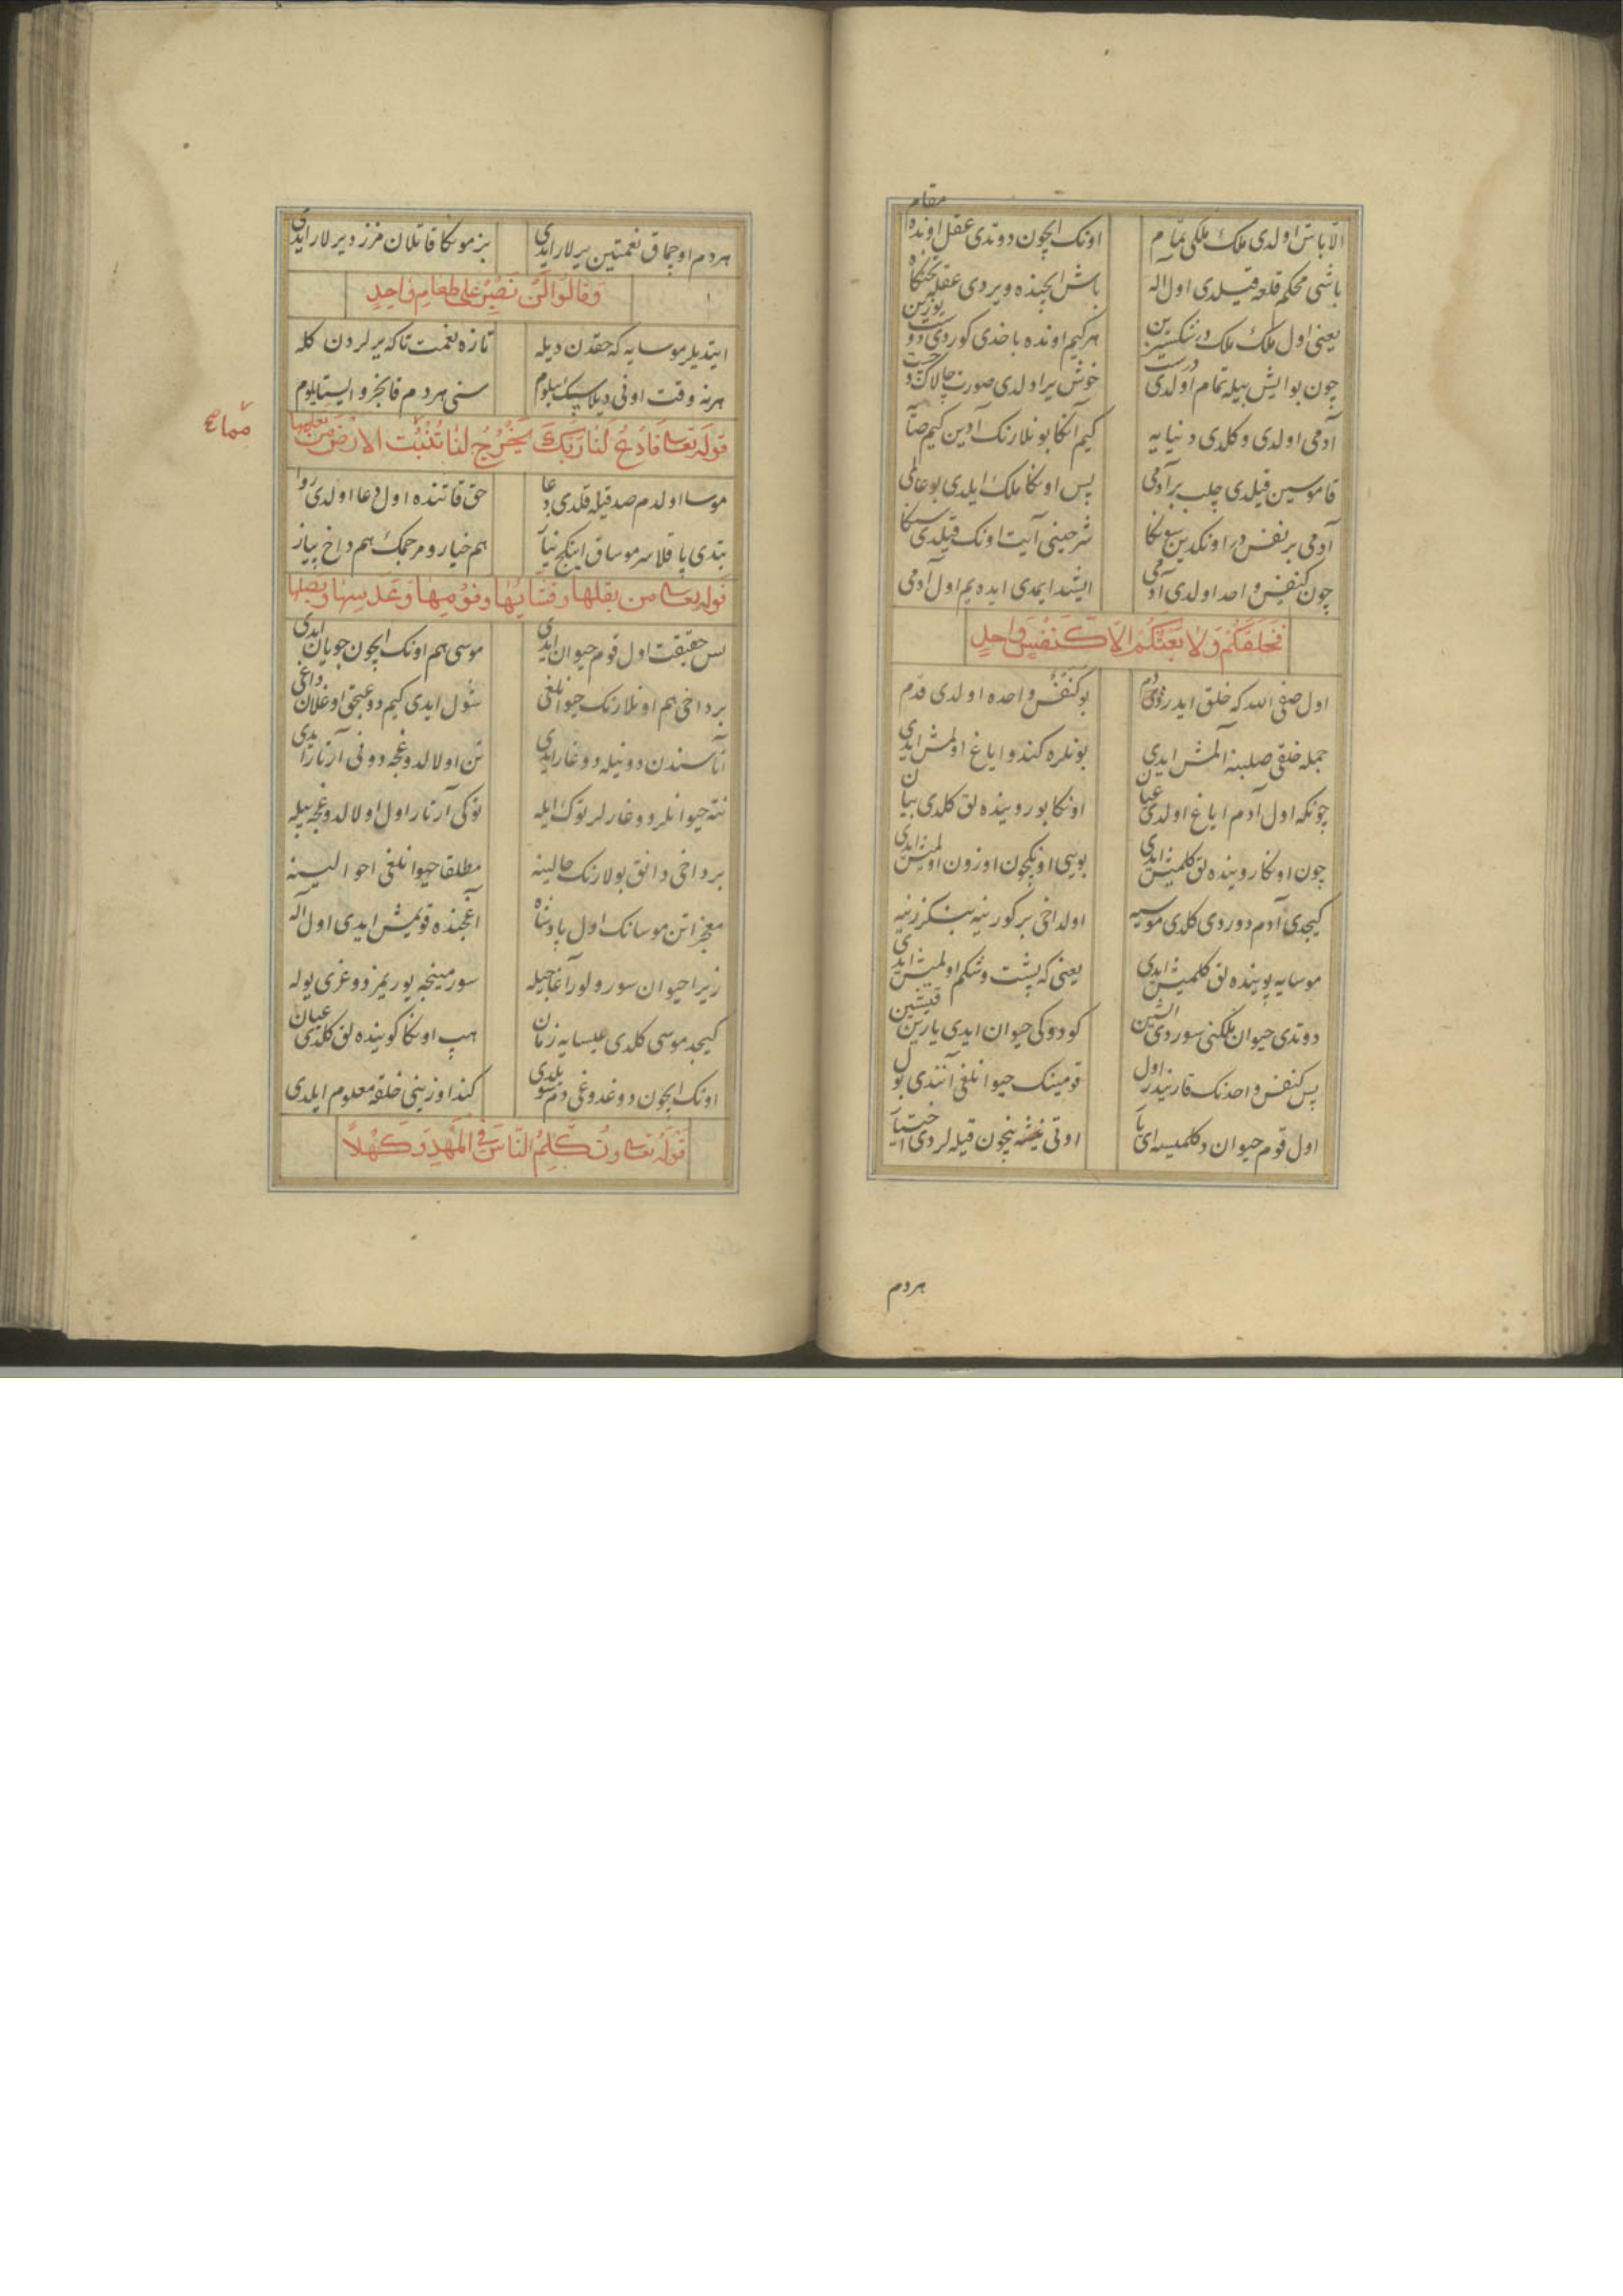 الا باش اولدی ملک ملکی تمام اونک ایچون دوتدی عقل اونده مقام
باشی محکم قلعه قیلدی اول اله باش ایچنده ویردی عقله تختکاه
یعنی اول ملک ملک در هرکیم اونده باخدی کوردی دوست یوزین
چون بو ایش بیله تمام اولدی درست خوش یر اولدی صورت چالاک و چست
آدمی اولدی و کلدی دنیایه کیم آنکا بونلارنک آدین کیم
قاموسین قیلدی چلب بر آدمی پس اونکا ملک ایلدی بو عالمی
آدمی بر نفس در اونکدین شرحینی آیت اونک قیلدی سکا
چون کنفس واحد اولدی آدمی ایشد ایمدی ایده یم اول آدمی
فخلقکم ولا بعثکم الا کنفس واحد
اول صفی الله که خلق ایدر بو کنفس واحده اولدی قدم
جمله خلقی صلبنه آلمش ایدی بونلره کندو ایاغ اولمش ایدی
چونکه اول آدم ایاغ اولدی عیان اونکا بوروینده لق کلدی بیان
چون اونکا روینده لق کلمیش ایدی بویی اونکچون اوزون اولمیش ایدی
کیجدی آدم دوردی کلدی موسیه اولداخی بر کورینه بنکزر نیه
موسایه پوینده لق کلمیش ایدی یعنی که پشت و شکم اولمیش ایدی
دوتدی حیوان ملکنی سوردی ایشین کودوکی حیوان ایدی یازین قیشین
پس کنفس واحدنک قارنیدر اول قومینک حیوانلغی آنتدی بول
اول قوم حیوان دکلمیسه ای یار اوتی نیشه نیچون قیله لردی اختیار
هردم
هردم اوچماق نعمتین ییرلار ایدی بز مونکا قاتلان مزز دیرلار ایدی
وقالوا لن نصبر علی طعام واحد
ایتدیلر موسایه که حقدن دیله تازه نعمت تاکه یرلردن کله
هرنه وقت اونی دیلاسیک بیلوم سنی هردم قانجرو ایستایلوم
قوله تعالی فادع لنا ربک یخرج لنا تنبت الارض من بقلها
موسا اولدم صدقیله قلدی دعا حق قاتنده اول دعا اولدی روا
بتدی باقلا سرموساق اینکچ نیاز هم خیار و مرجمک هم داخ پیاز
قوله تعالی من بقلها وقثائها وفومها وعدسها وبصلها
پس حقیقت اول قوم حیوان ایدی موسی هم اونک ایچون چوبان ایدی
بر داخی هم اونلارنک حیوانلغی شول ایدی کیم دوغیجق اوغلان داغی
آناسندن دونیله دوغار ایدی تن اولالدوغجه دونی آرتار ایدی
نته حیوانلر دوغارلر توک ایله توکی آرتار اول اولالدوغجه بیله
بر داخی دانق بولارنک حالینه مطلقا حیوانلغی احوالینه
معجزاتن موسانک اول پادشاه اغجنده قویمش ایدی اول اله
زیرا حیوان سورولور آغاجیله سورمینجه یوریمز دوغری یوله
کیجد موسی کلدی عیسایه زمان هپ اونکا کوینده لق کلدی عیان
اونک ایچون دوغدوغی دم سویلدی کندا وزینی خلقه معلوم ایلدی
قوله تعالی وتکلم الناس فی المهد وکهلا